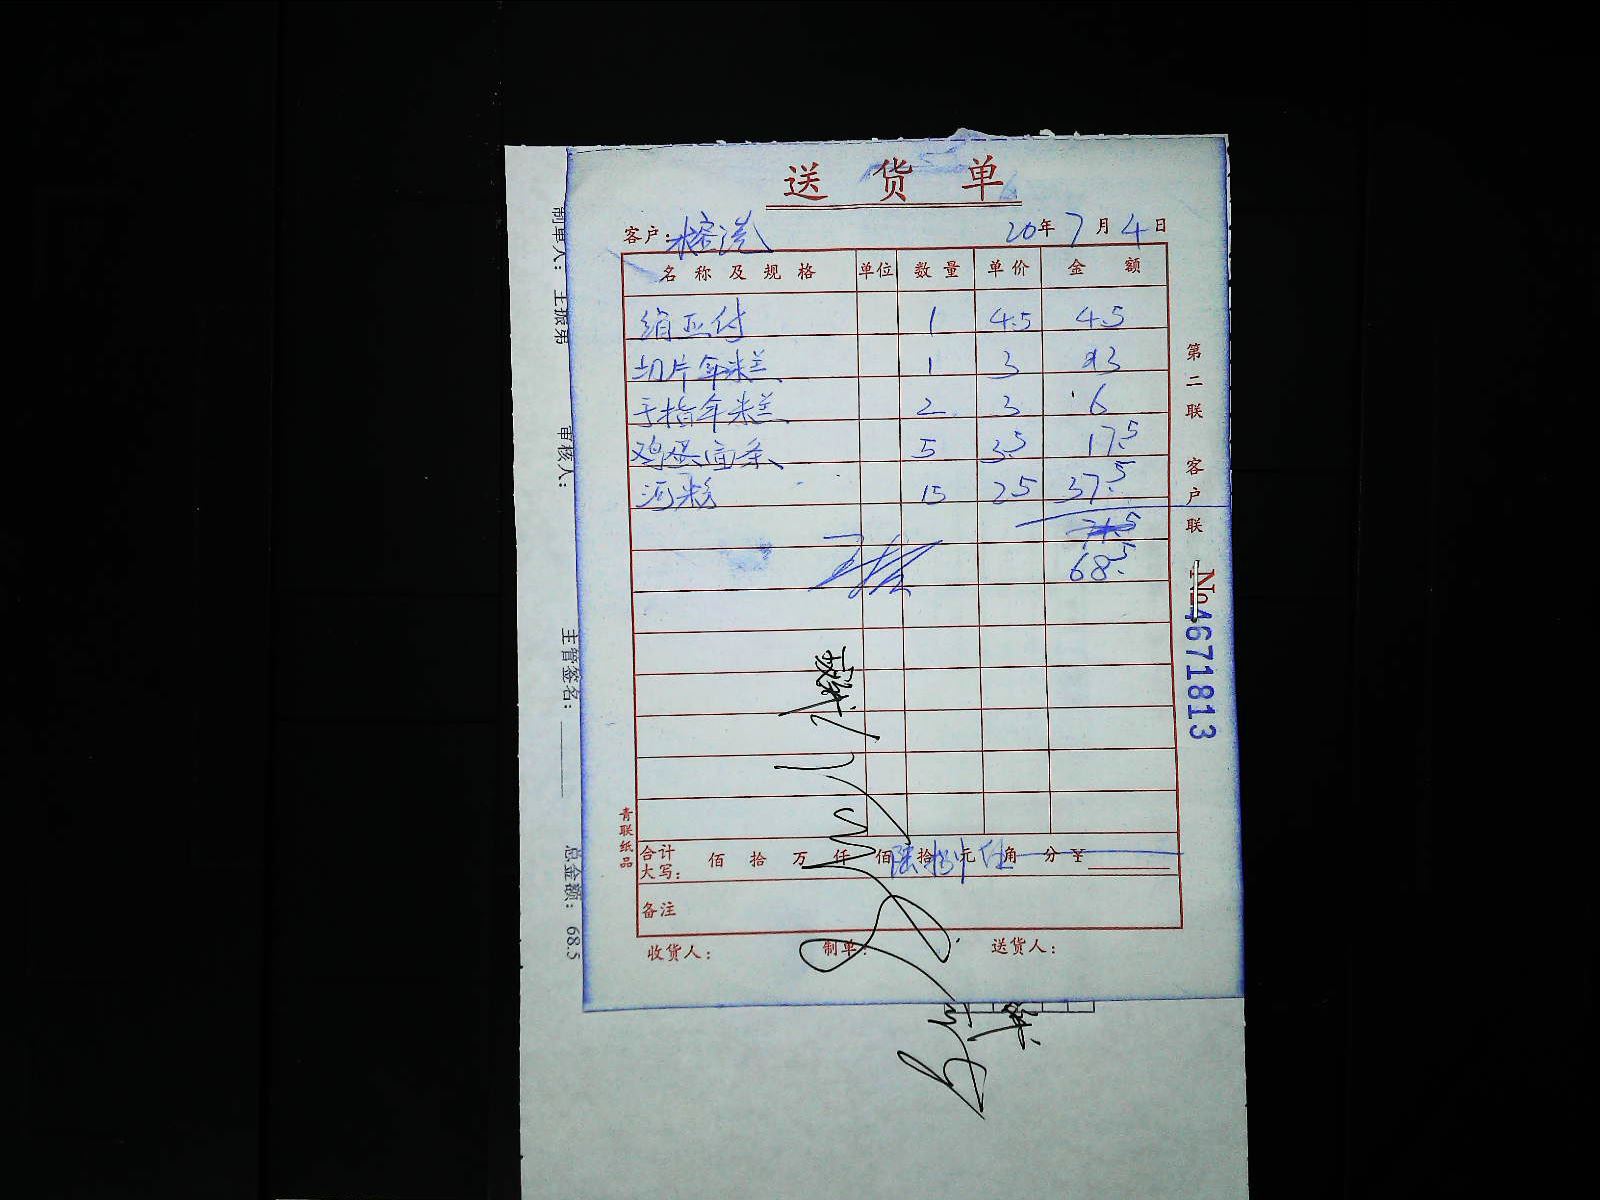 送货单
客户: 榕港 20年7月4日
名称及规格 单位 数量 单价 金额
1 4.5 4.5
切片年糕 1 3 3
手指年糕 2 3 6
鸡蛋面条 5 3.5 17.5
河粉 15 2.5 37.5
71.5
68.5
合计大写: 佰 拾 万 仟 佰 陆拾捌元伍角 分 ¥
备注
收货人: 制单: 送货人:
第二联 客户联
No 4671813
青联纸品
制单人: 王振弟 审核人: 主管签名: 总金额: 68.5